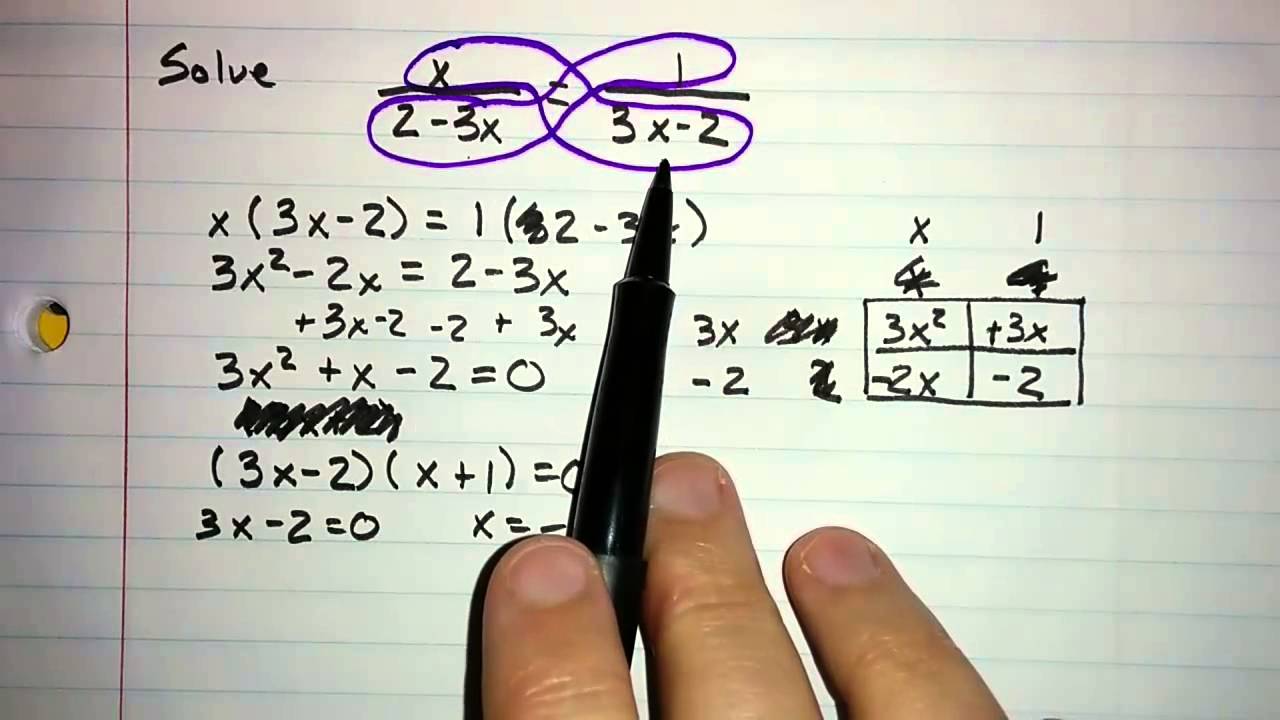 Solve x/(2-3x) = 1/(3x-2)
x(3x-2) = 1(2-3
3x²-2x = 2-3x
+3x-2 -2 + 3x
3x²+x-2=0
(3x-2)(x+1)=0
3x-2=0 x=-
x 1
3x 3x² +3x
-2 -2x -2